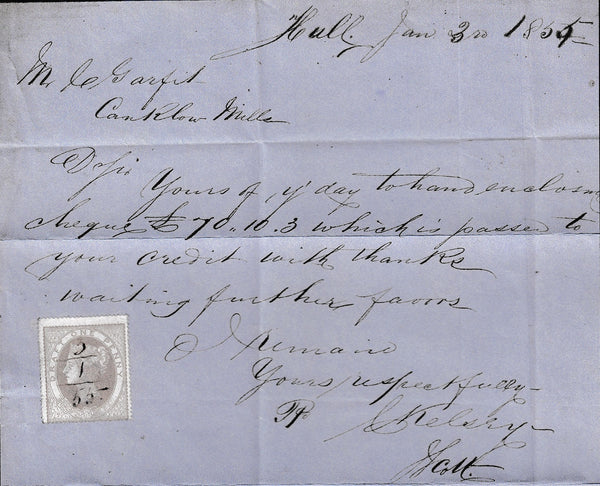 Hull, Jan 3rd 1855
Mr J Garfit
Canklow Mills
D Sir
Yours of y'day to hand enclosing
cheque £70.10.3 which is passed to
your credit with thanks
waiting further favors
I remain
Yours respectfully
Pp S Kelsey
Scott.
DRAFT ONE PENNY
2/1/55